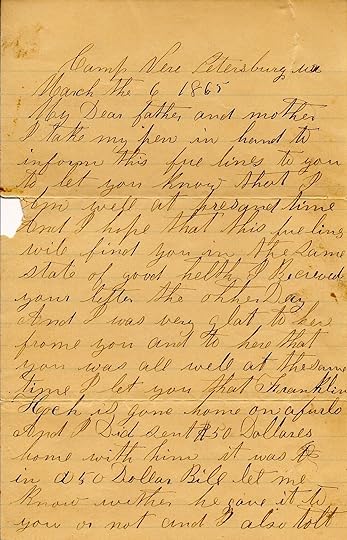 Camp Nere Petersburg va
March the 6 1865
My Dear father and mother
I take my pen in hand to
inform this fue lines to you
to let you know that I
Am well at presand time
And I hope that this fue lines
wile find you in the same
state of good helth I Recieved
your letter the other Day
And I was very glat to her
frome you and to here that
you was all well at the same
time I let you that Franklin
Hoch is gone home on a furlo
And I Did sent $50 Dollares
home with him it was
in A 50 Dollar Bill let me
know wither he gave it to
you or not and I also tolt